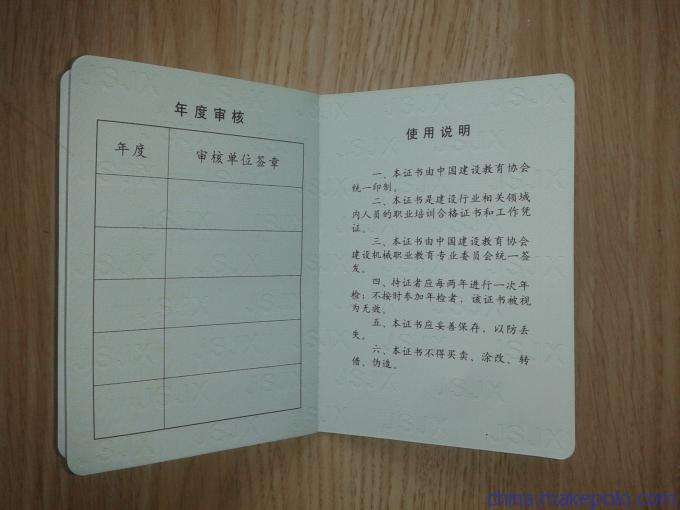 年度审核
年度
审核单位签章
使用说明
一、本证书由中国建设教育协会
统一印制。
二、本证书是建设行业相关领域
内人员的职业培训合格证书和工作凭
证。
三、本证书由中国建设教育协会
建设机械职业教育专业委员会统一签
发。
四、持证者应每两年进行一次年
检；不按时参加年检者，该证书被视
为无效。
五、本证书应妥善保存，以防丢
失。
六、本证书不得买卖、涂改、转
借、伪造。
JSJX
china.makepolo.com